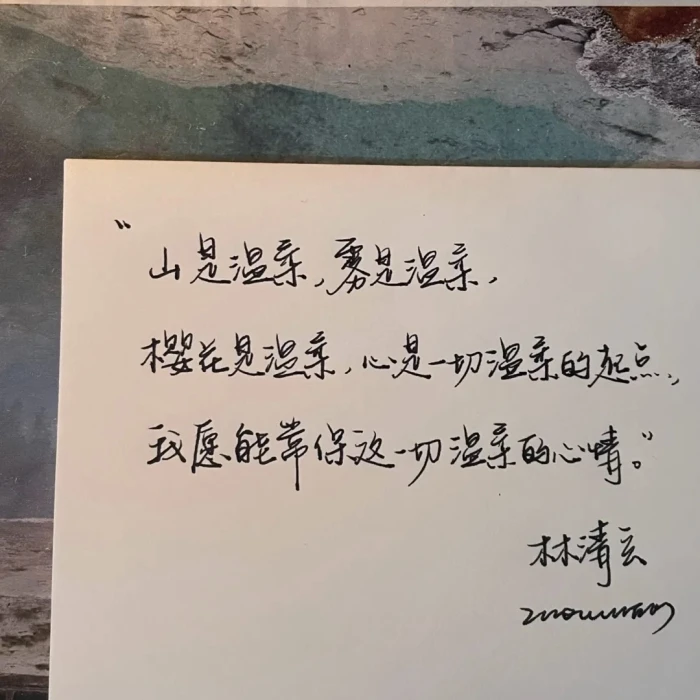 “山是温柔，雾是温柔，
樱花是温柔，心是一切温柔的起点，
我愿能常保这一切温柔的心情。”
林清玄